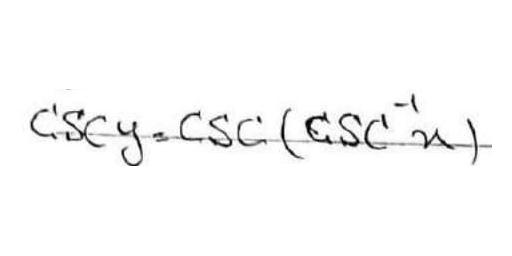 cscy = csc(csc⁻¹x)